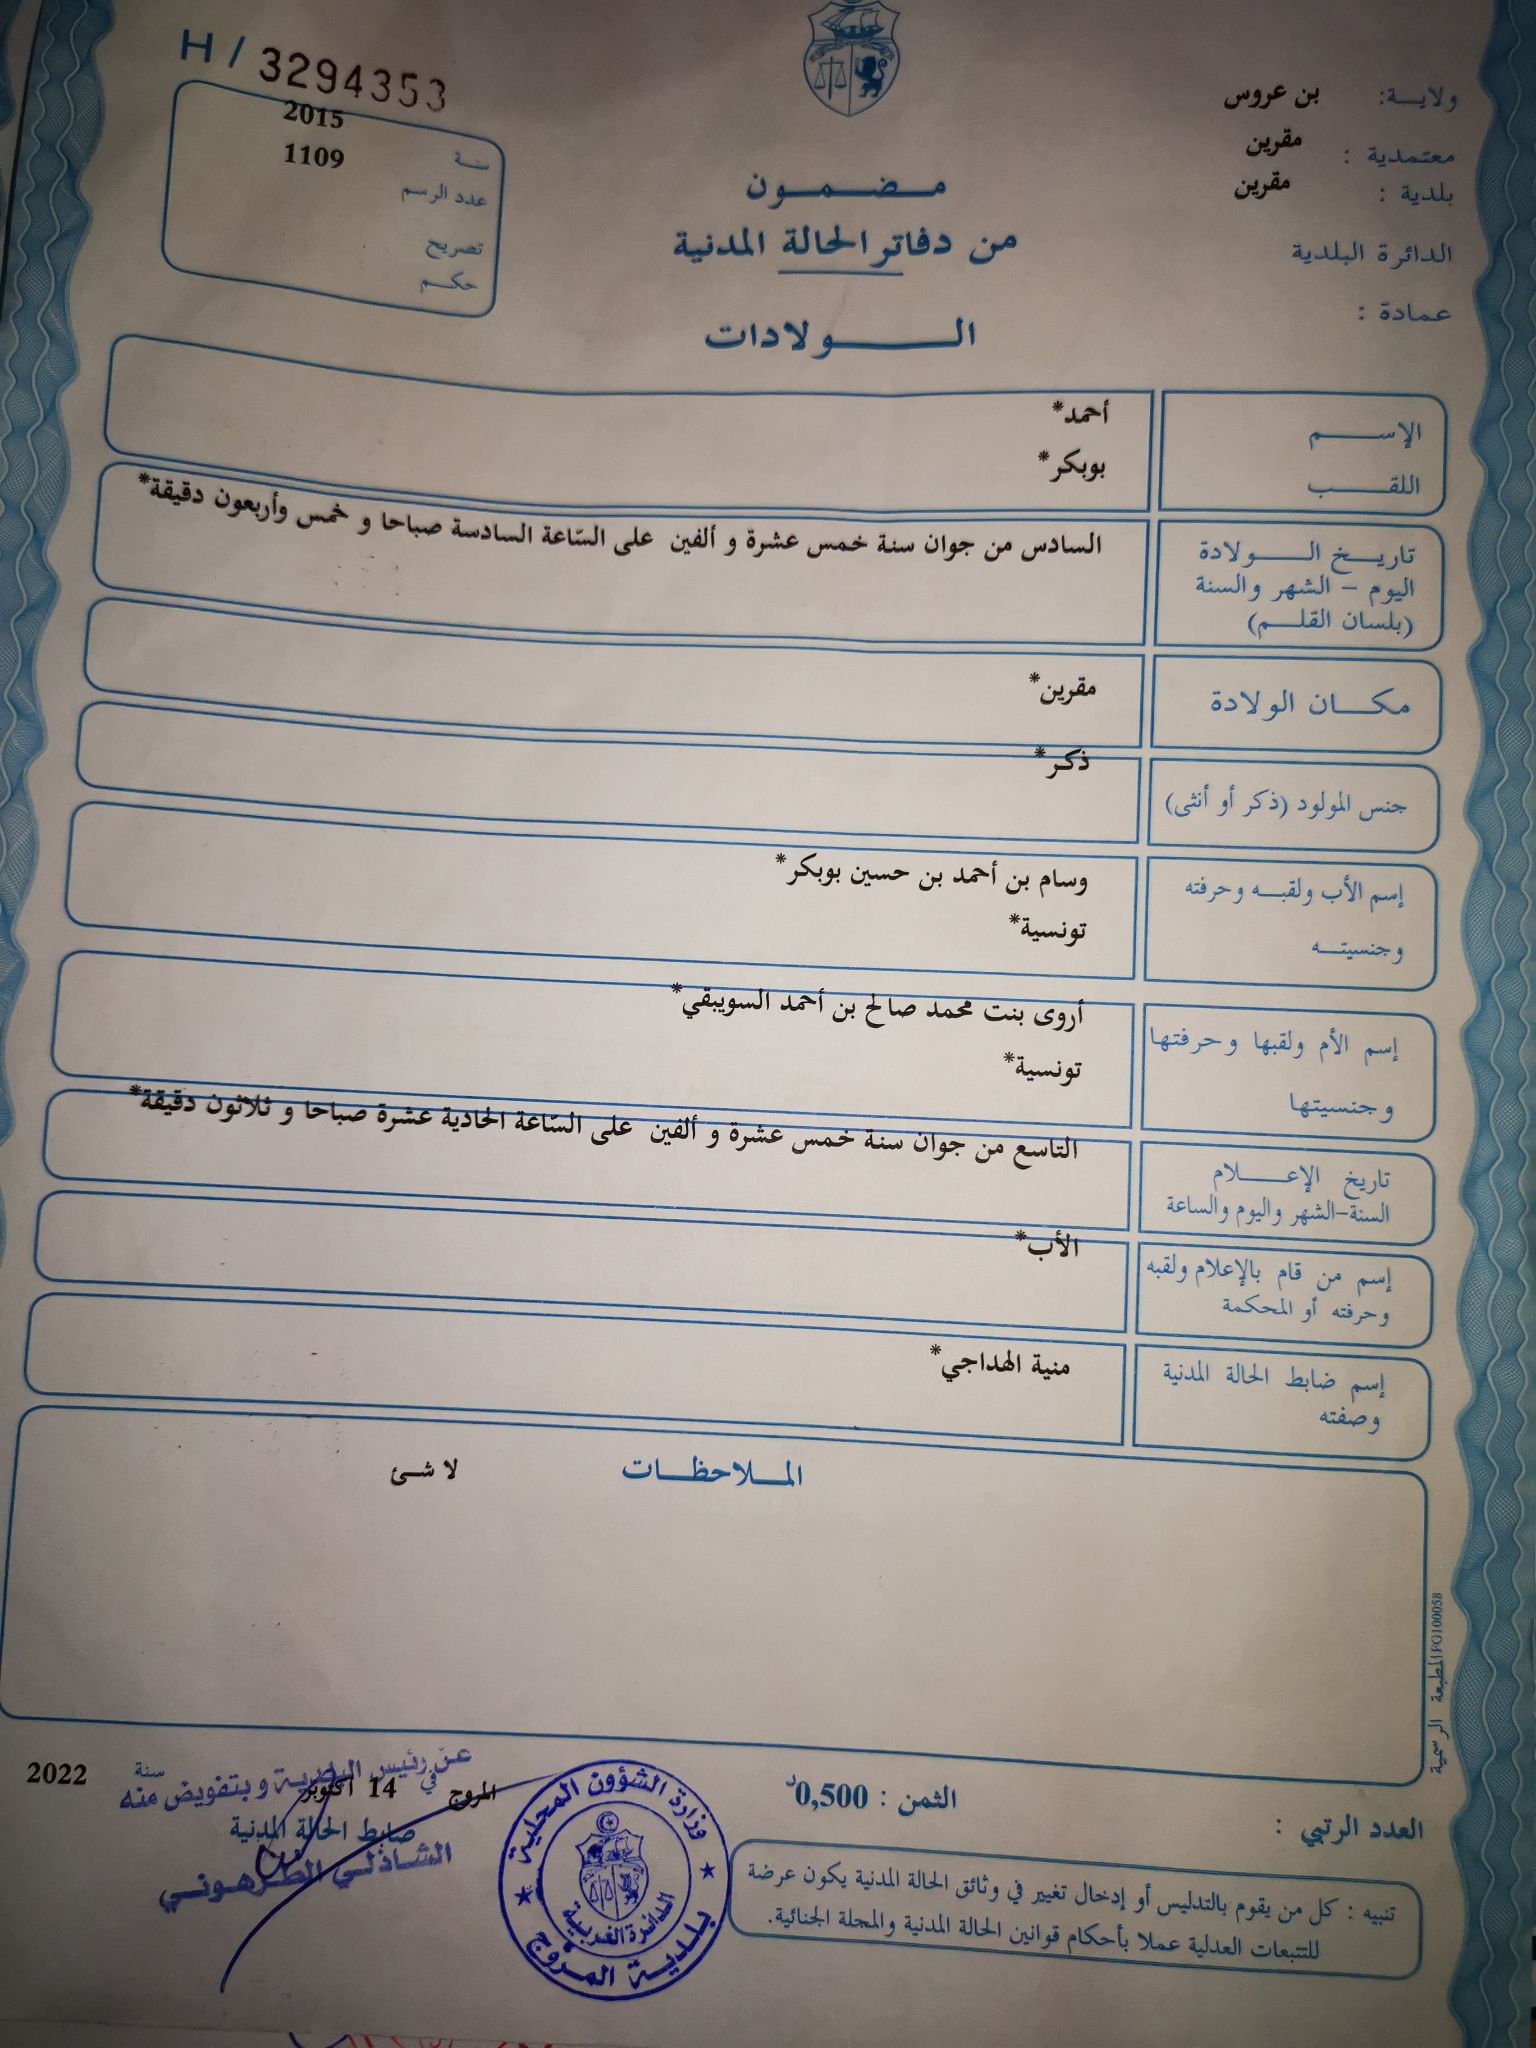 H / 3294353
ولايـة: بن عروس
معتمدية : مقرين
بلدية : مقرين
الدائرة البلدية
عمادة :
2015
سنة
1109
عدد الرسم
تصريح
حكـم
مـضـمـون
من دفاتر الحالة المدنية
الـولادات
الإسـم
أحمد*
اللقـب
بوبكر*
تاريـخ الـولادة
اليوم – الشهر والسنة
(بلسان القلـم)
السادس من جوان سنة خمس عشرة و ألفين على السّاعة السادسة صباحا و خمس وأربعون دقيقة*
مكـان الولادة
مقرين*
جنس المولود (ذكر أو أنثى)
ذكر*
إسم الأب ولقبـه وحرفته
وسام بن أحمد بن حسين بوبكر*
وجنسيتـه
تونسية*
إسم الأم ولقبها وحرفتها
أروى بنت محمد صالح بن أحمد السويبقي*
وجنسيتها
تونسية*
تاريخ الإعـلام
السنة-الشهر واليوم والساعة
التاسع من جوان سنة خمس عشرة و ألفين على السّاعة الحادية عشرة صباحا و ثلاثون دقيقة*
إسم من قام بالإعلام ولقبه
وحرفته أو المحكمة
الأب*
إسم ضابط الحالة المدنية
وصفته
منية الهداجي*
المـلاحظـات
لا شئ
المطبعة الرسمية FG100058
المروج في 14 أكتوبر سنة 2022
عن رئيس البلدية وبتفويض منه
ضابط الحالة المدنية
الشاذلي الطرهوني
وزارة الشؤون المحلية
الدائرة الغربية
بلدية المروج
الثمن : 0,500د
العدد الرتبي :
تنبيه : كل من يقوم بالتدليس أو إدخال تغيير في وثائق الحالة المدنية يكون عرضة
للتتبعات العدلية عملا بأحكام قوانين الحالة المدنية والمجلة الجنائية.